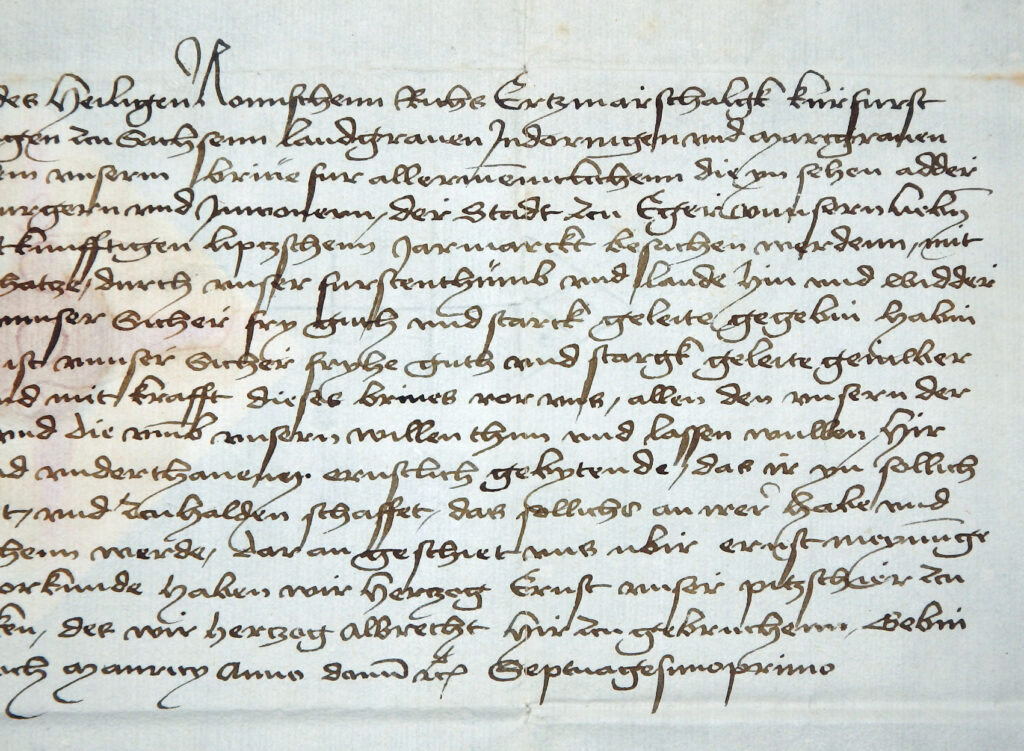 des Heiligen Romischenn Richs Ertzmarschalgk kurfurst
gen zcu Sachsenn landgrauen Indoringen vnd Marcgrauen
vnserm briue fur allermeniclichenn die yn sehen adder
vnd Inwonern, der Stadt zcu Eger vnnsern liebin
kunfftigen lipczschenn Jarmarckt besuchen werdenn, mit
hatze, durch vnser furstenthümb vnd lande hin vnd widder
vnnser Sicher fry guth vnd starck geleite gegebin habin
ist vnnser Sicher fryhe guth vnd stargk geleite
mit krafft dieses briues vor vns, allen den vnsern der
vnd die vmb vnsern willen thun vnd lassen wullen, Hir
vnderthanenn ernstlich gebytende, das ir yn sollich
vnd zcu halden schaffet, das sollichs an were habe vnd
henn werde, dar an geschiet vns ernst meynunge
orkunde haben wir Hertzog Ernst vnser pitzschier zcu
ken, des wir hertzog Albrecht hir zcu gebruchenn, Gebin
och Mauricy Anno domini Septuagesimoprimo